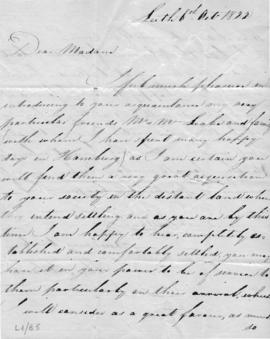 Leith 6th Oct 1822
Dear Madam
I feel much pleasure in
introducing to your acquaintance my very
particular friends Mr & Mrs and fam
with whom I have spent many happy
days in Hamburg as I am certain you
will find them a very great acquisition
to your society in the distant land where
they intend settling and as you are by this
time I am happy to hear, completely es
tablished and comfortably settled, you may
have it in your power to be of service to
them particularly on their arrival, which
I will consider as a great favour, as much
so
L1/85